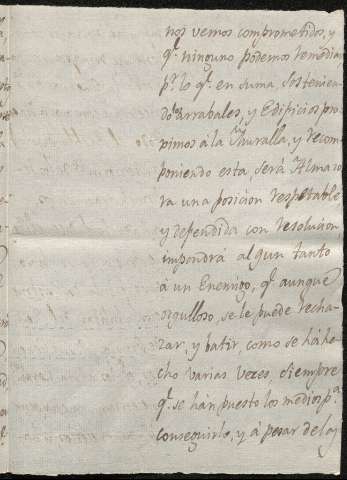 nos vemos comprometidos, y
q.ᵉ ninguno podemos remediar
p.ʳ lo q.ᵉ en suma, sostenien
do Arrabales, y Edificios pro
pimos á la Muralla, y recom
poniendo esta, será Almazo
ra una posicion respetable
y defendida con resolucion,
impondrá algun tanto
á un Enemigo, q.ᵉ aunque
orgulloso, se le puede recha
zar, y batir, como se há he
cho varias vezes, siempre
q.ᵉ se hán puesto los medios p.ᵃ
conseguirlo, y á pesar de la